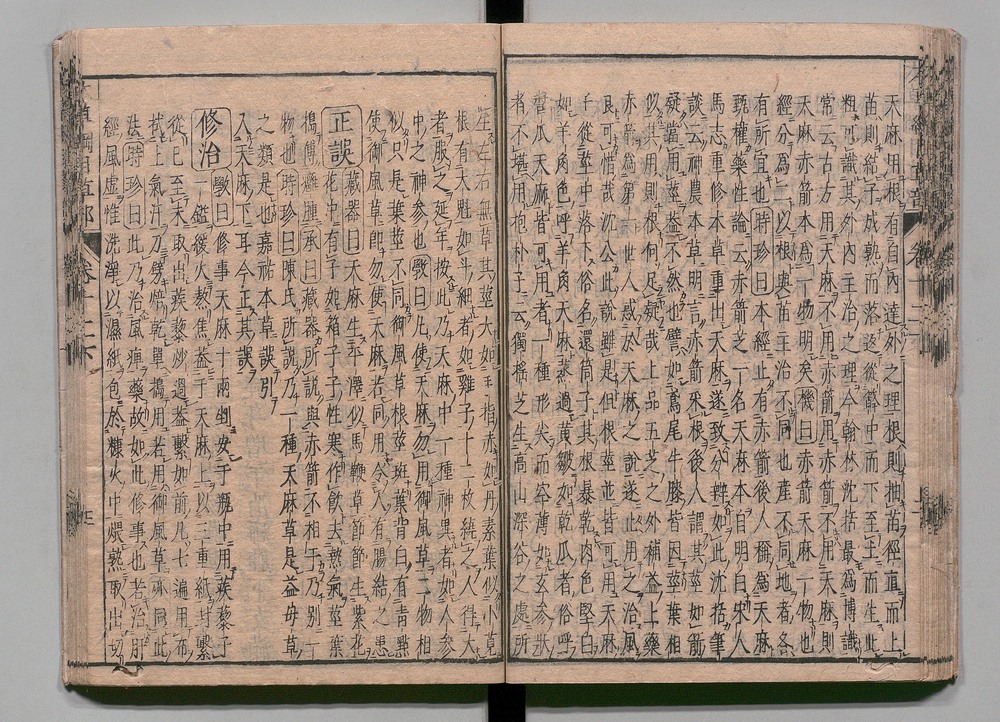 天麻用根有自內達外之理根則抽苗徑直而上
苗則結子成熟而落返從簳中而下至土而生此
粗可識其外內主治之理今翰林沈括最為博識
常云古方用天麻不用赤箭用赤箭不用天麻則
天麻赤箭本為一物明矣機曰
經分為二以根與苗主治不同也產不同地者各
有所宜也時珍曰本經止有赤箭後人稱為天麻
甄權藥性論云赤箭芝一名天麻本自明白宋人
馬志重修本草重出天麻遂致分辯如此沈括筆
談云神農本草明言赤箭采根後人謂其莖如箭
疑當用莖蓋不然也譬如鳶尾牛膝皆因莖葉相
似其用則用根何足疑哉上品五芝之外補益上藥
赤箭為第一世人惑於天麻之說遂止用之治風
良可惜哉沈公此說雖是但根莖並皆可用天麻
子從莖中落下俗名還筒子其根暴乾肉色堅白
如羊角色呼羊角天麻蒸過黃皺如乾瓜者俗呼
醬瓜天麻皆可用者一種形尖而空薄如玄參狀
者不堪用抱朴子云獨搖芝生高山深谷之處所
生左右無草其莖大如手指赤如丹素葉似小莧
根有大魁如斗細者如雞子十二枚繞之人得大
者服之延年按此乃天麻中一種神異者如人參
中之神參也斅曰凡使天麻勿用御風草二物相
似只是葉莖不同御風草根莖斑葉背白有青點
使御風草即勿使天麻若同用令人有腸結之患
正誤 藏器曰天麻生平澤似馬鞭草節節生紫花
花中有子如青葙子子性寒作飲去熱氣莖葉
擣傅癰腫承曰藏器所說與赤箭不相干乃別一
物也時珍曰陳氏所說乃一種天麻草是益母草
之類是也嘉祐本草誤引
入天麻下耳今正其誤
修治 斅曰修事天麻十兩剉安于瓶中用蒺藜子
一鎰緩火熬焦蓋于天麻上以三重紙封繫
從巳至未取出蒺藜炒過蓋繫如前凡七遍用布
拭上氣汗刀劈焙乾單擣用若用御風草亦同此
法時珍曰此乃治風痹藥故如此修事也若治肝
經風虛惟洗淨以濕紙包於糠火中煨熟取出切